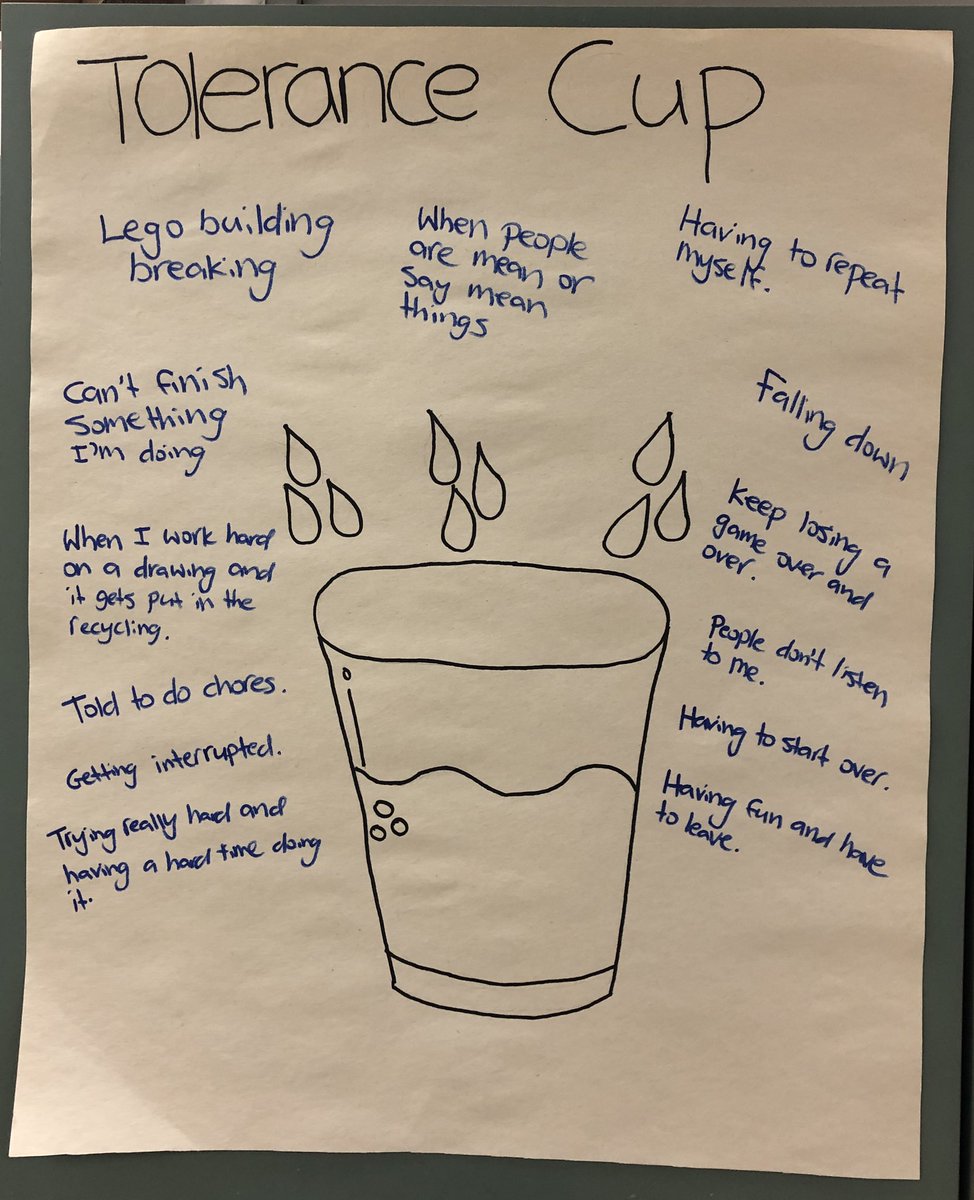 Tolerance Cup
Lego building
breaking
When people
are mean or
say mean
things
Having to repeat
myself.
Can't finish
something
I'm doing
Falling down
When I work hard
on a drawing and
it gets put in the
recycling.
Keep losing a
game over and
over.
People don't listen
to me.
Told to do chores.
Having to start over.
Getting interrupted.
Having fun and have
to leave.
Trying really hard and
having a hard time doing
it.